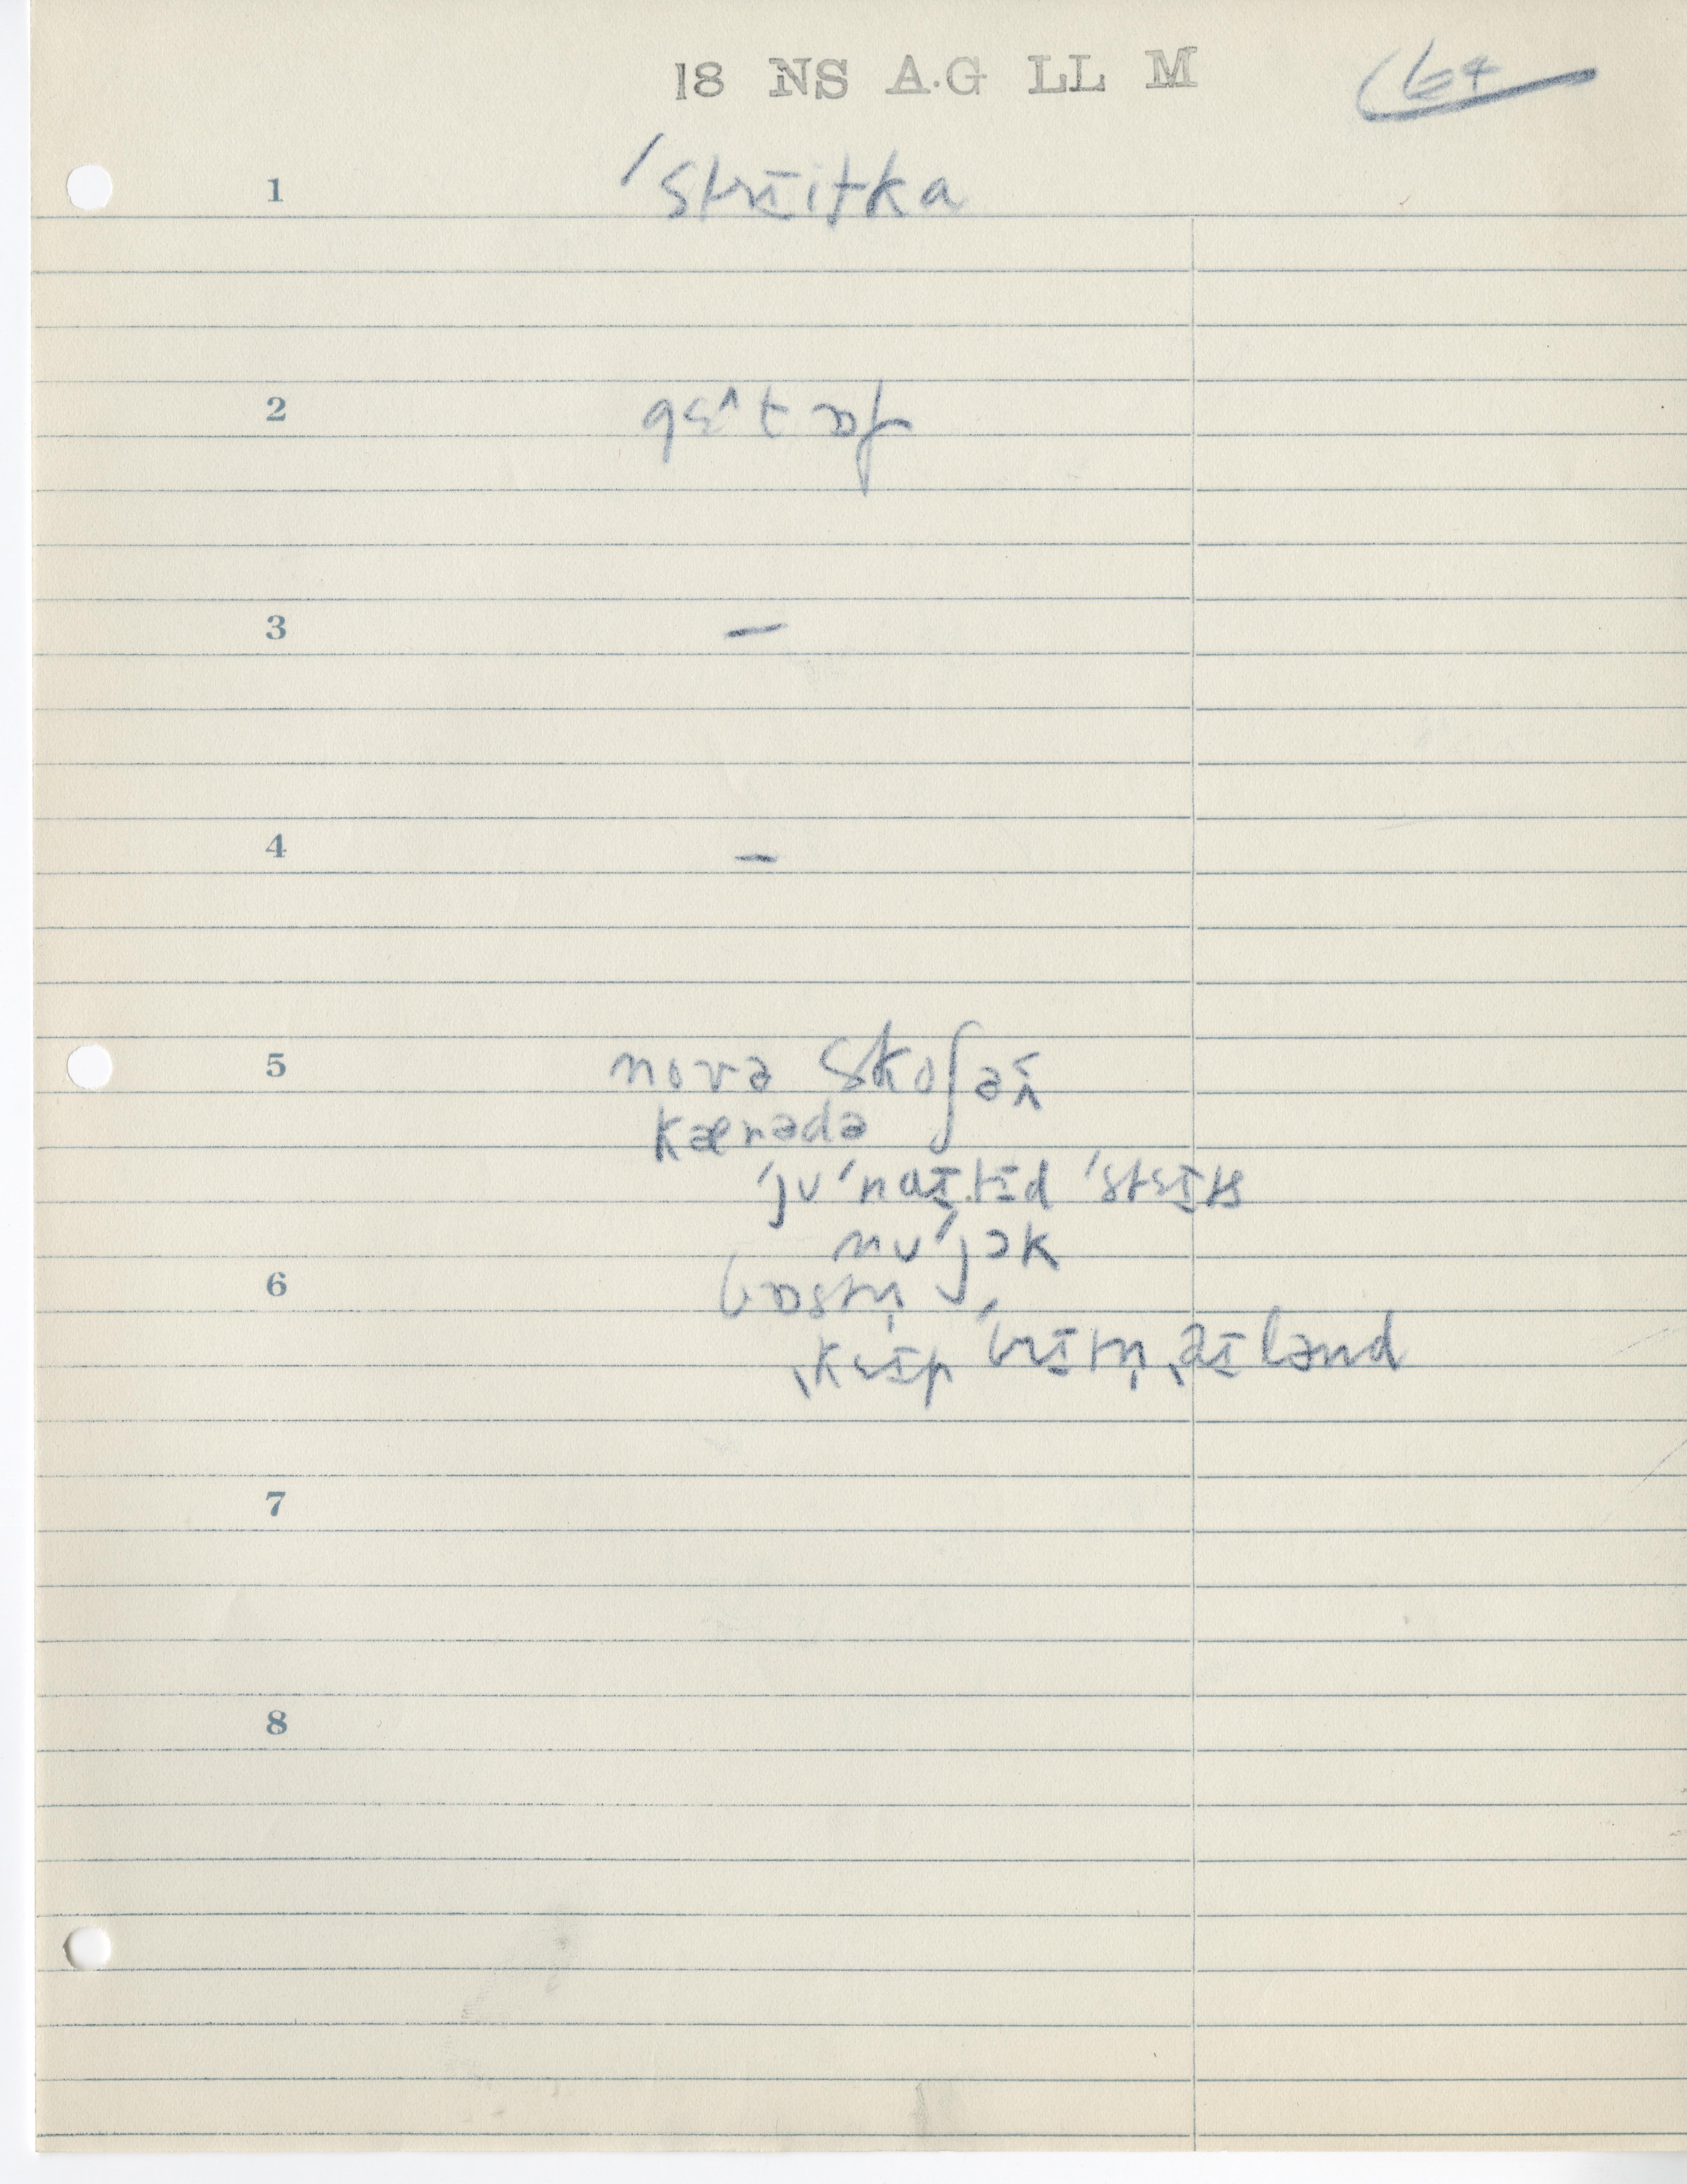 18 NS A.G LL M
1 ˈstrɛɪtka
2 gɛ^t ɒf
3 –
4 –
5 nova skoʃə
kænədə
ˈjuˈnaɪtɪd ˈstɛɪts
nuˈjɔk
6 bɒstn̩
ˌkɛɪp ˈbrɪtn̩ ˌaɪlənd
7
8